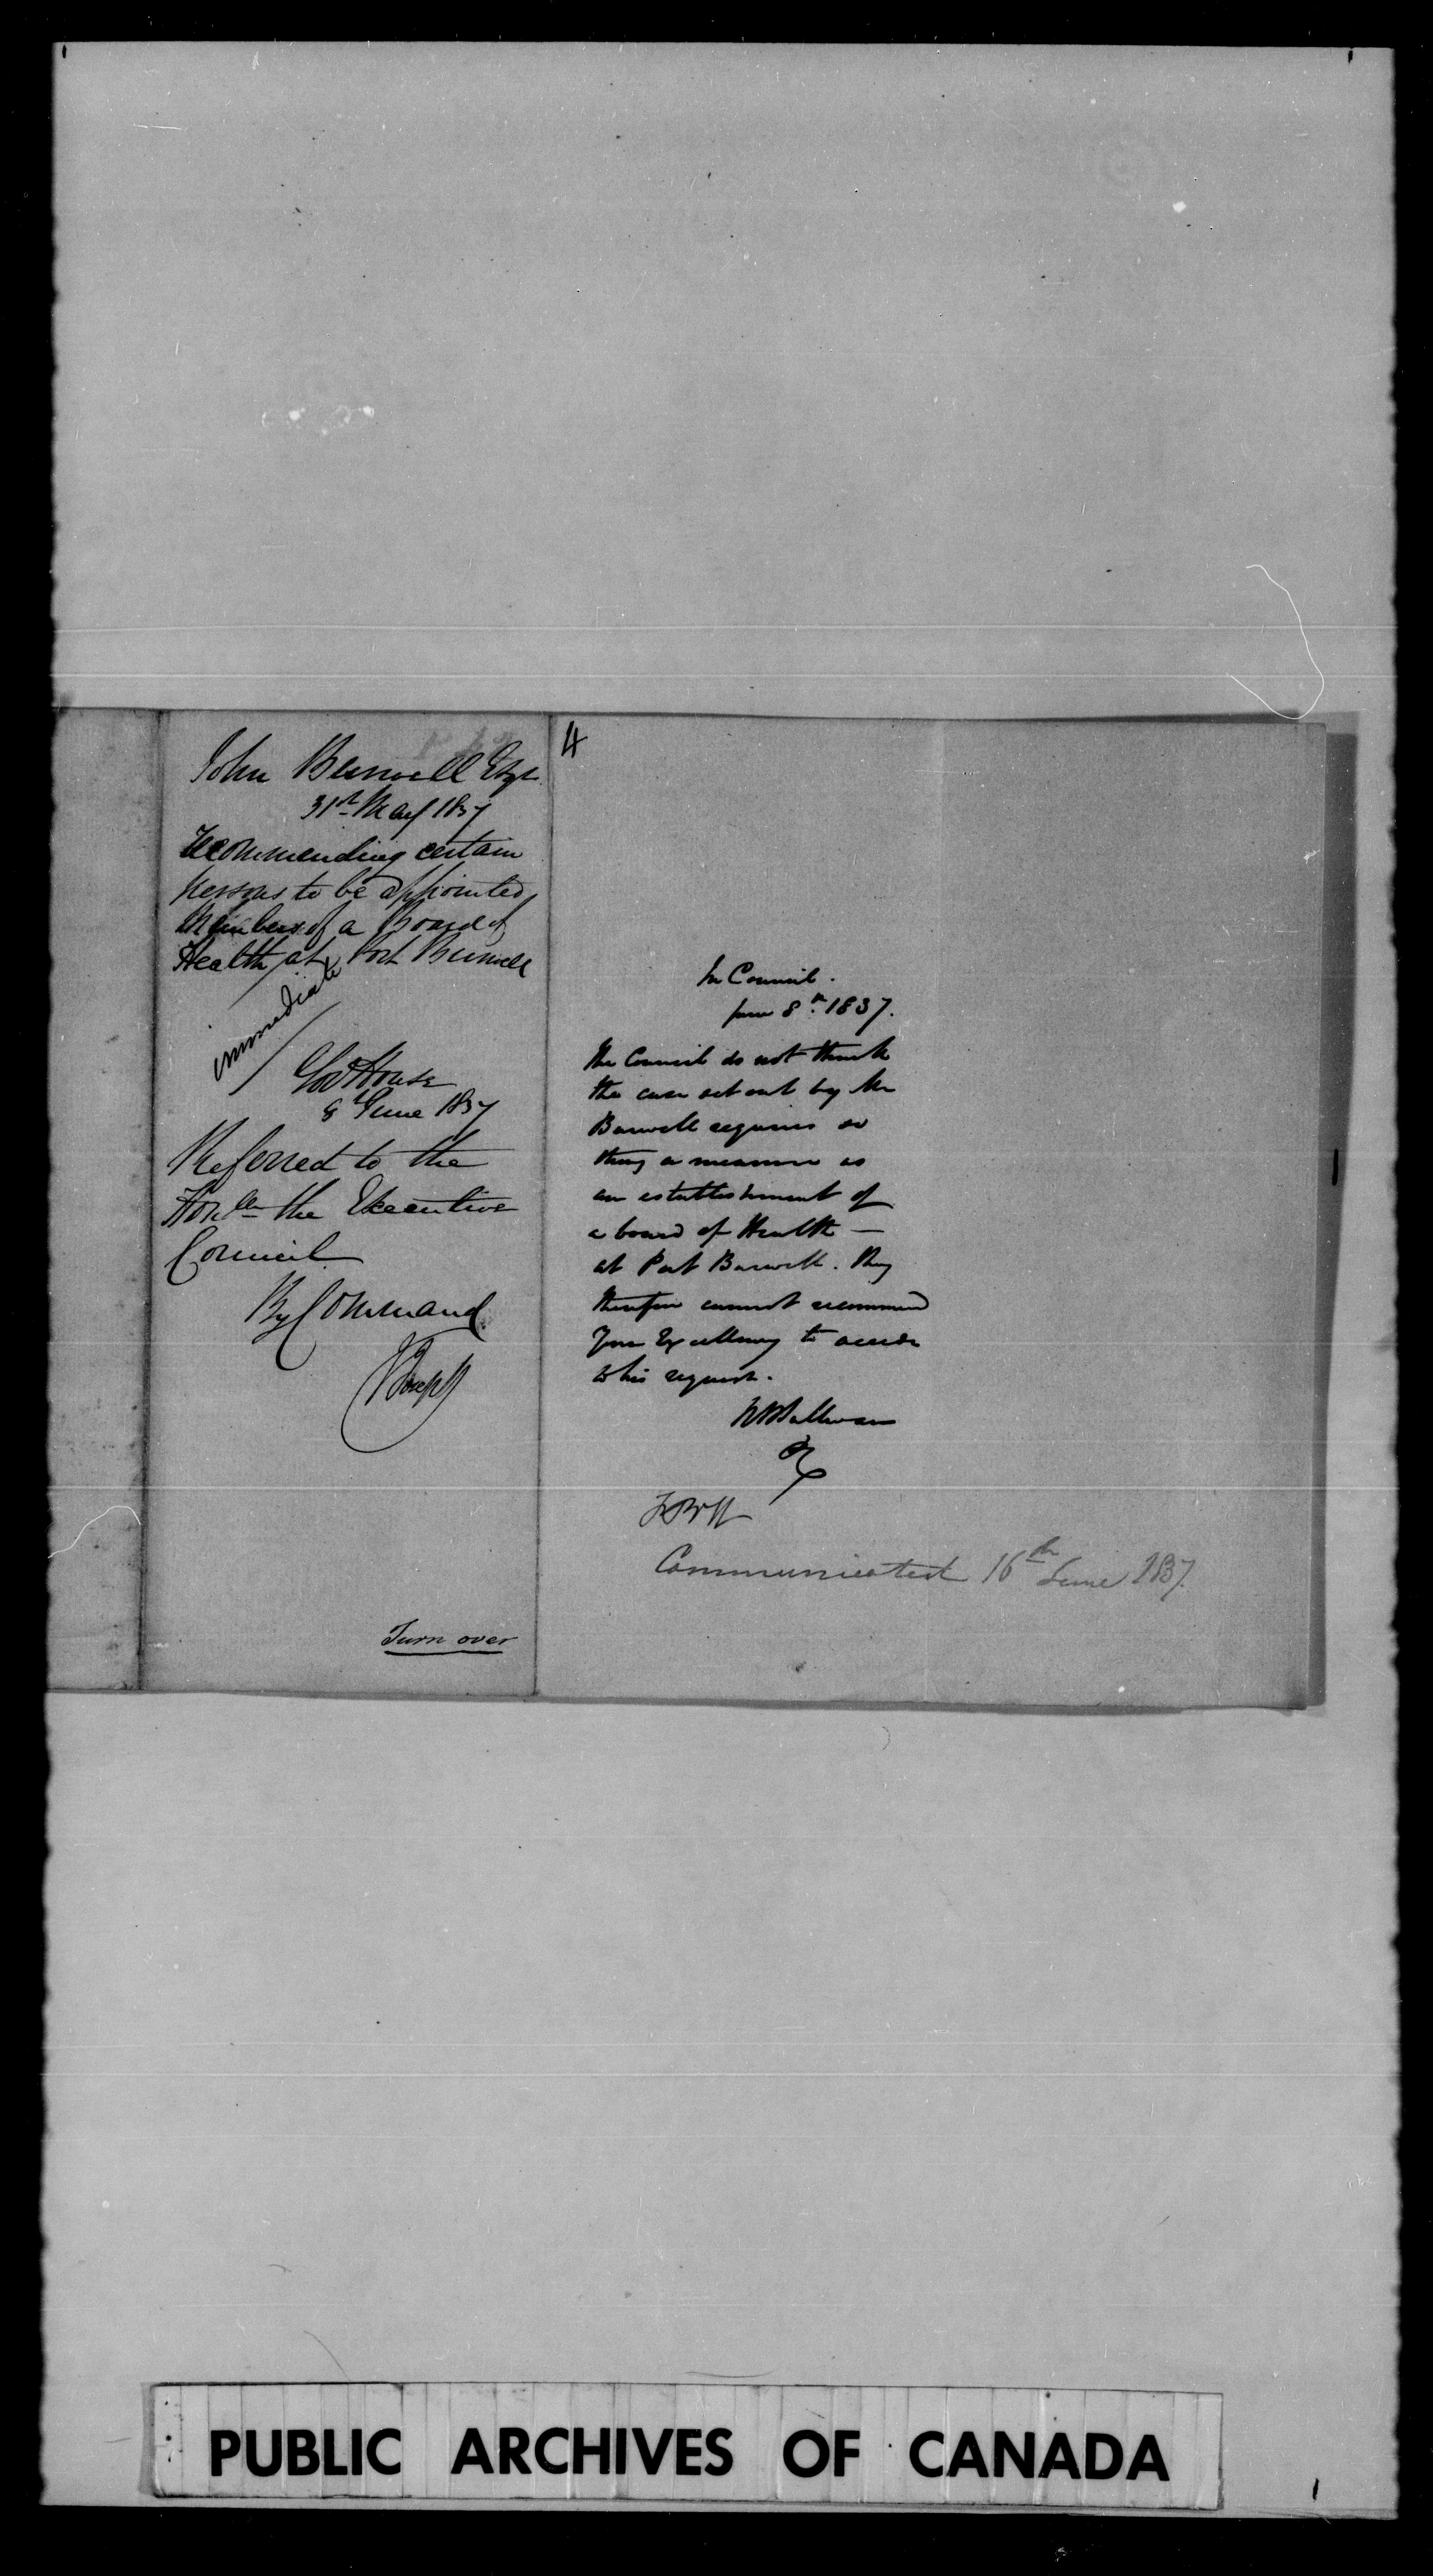 John Burwell Esqr
31st May 1837
recommending certain
persons to be appointed
Members of a Board of
Health at Port Burwell
immediate
Govt House
8 June 1837
Referred to the
Honble the Executive
Council
By Command
J Joseph
Turn over
4
In Council.
June 8th 1837.
The Council do not think
the case set out by Mr
Burwell requires so
strong a measure as
an establishment of
a board of Health —
at Port Burwell. They
therefore cannot recommend
Your Excellency to accede
to his request.
RBSullivan
PC
FBH
Communicated 16th June 1837.
PUBLIC ARCHIVES OF CANADA